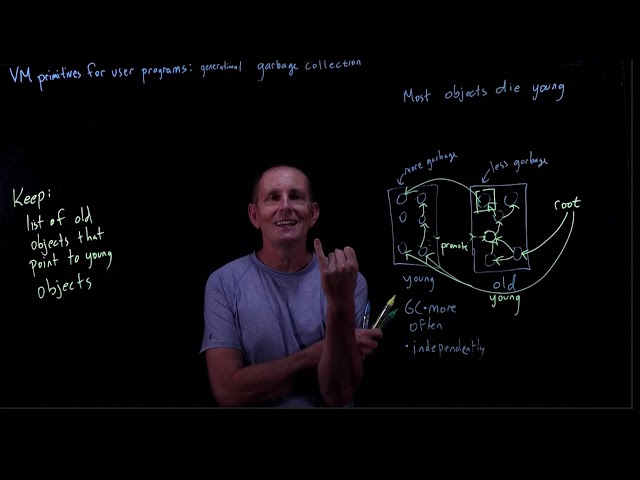 VM primitives for user programs: generational garbage collection
Most objects die young
more garbage
less garbage
Keep:
list of old
objects that
point to young
objects
root
promote
young
old
young
GC • more
often
• independently